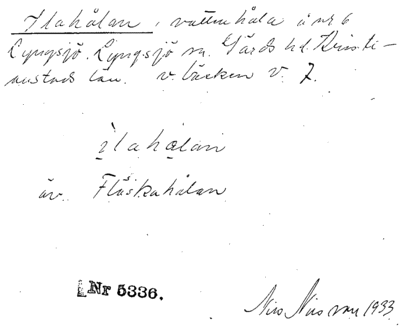 Ilahålan, vattenhåla å nr 6
Lyngsjö. Lyngsjö sn. Gärds hd. Kristi-
anstads län. v. bäcken v. 7.
ilahålan
äv. Fläskahålan
Nr 5336.
Nils 1933